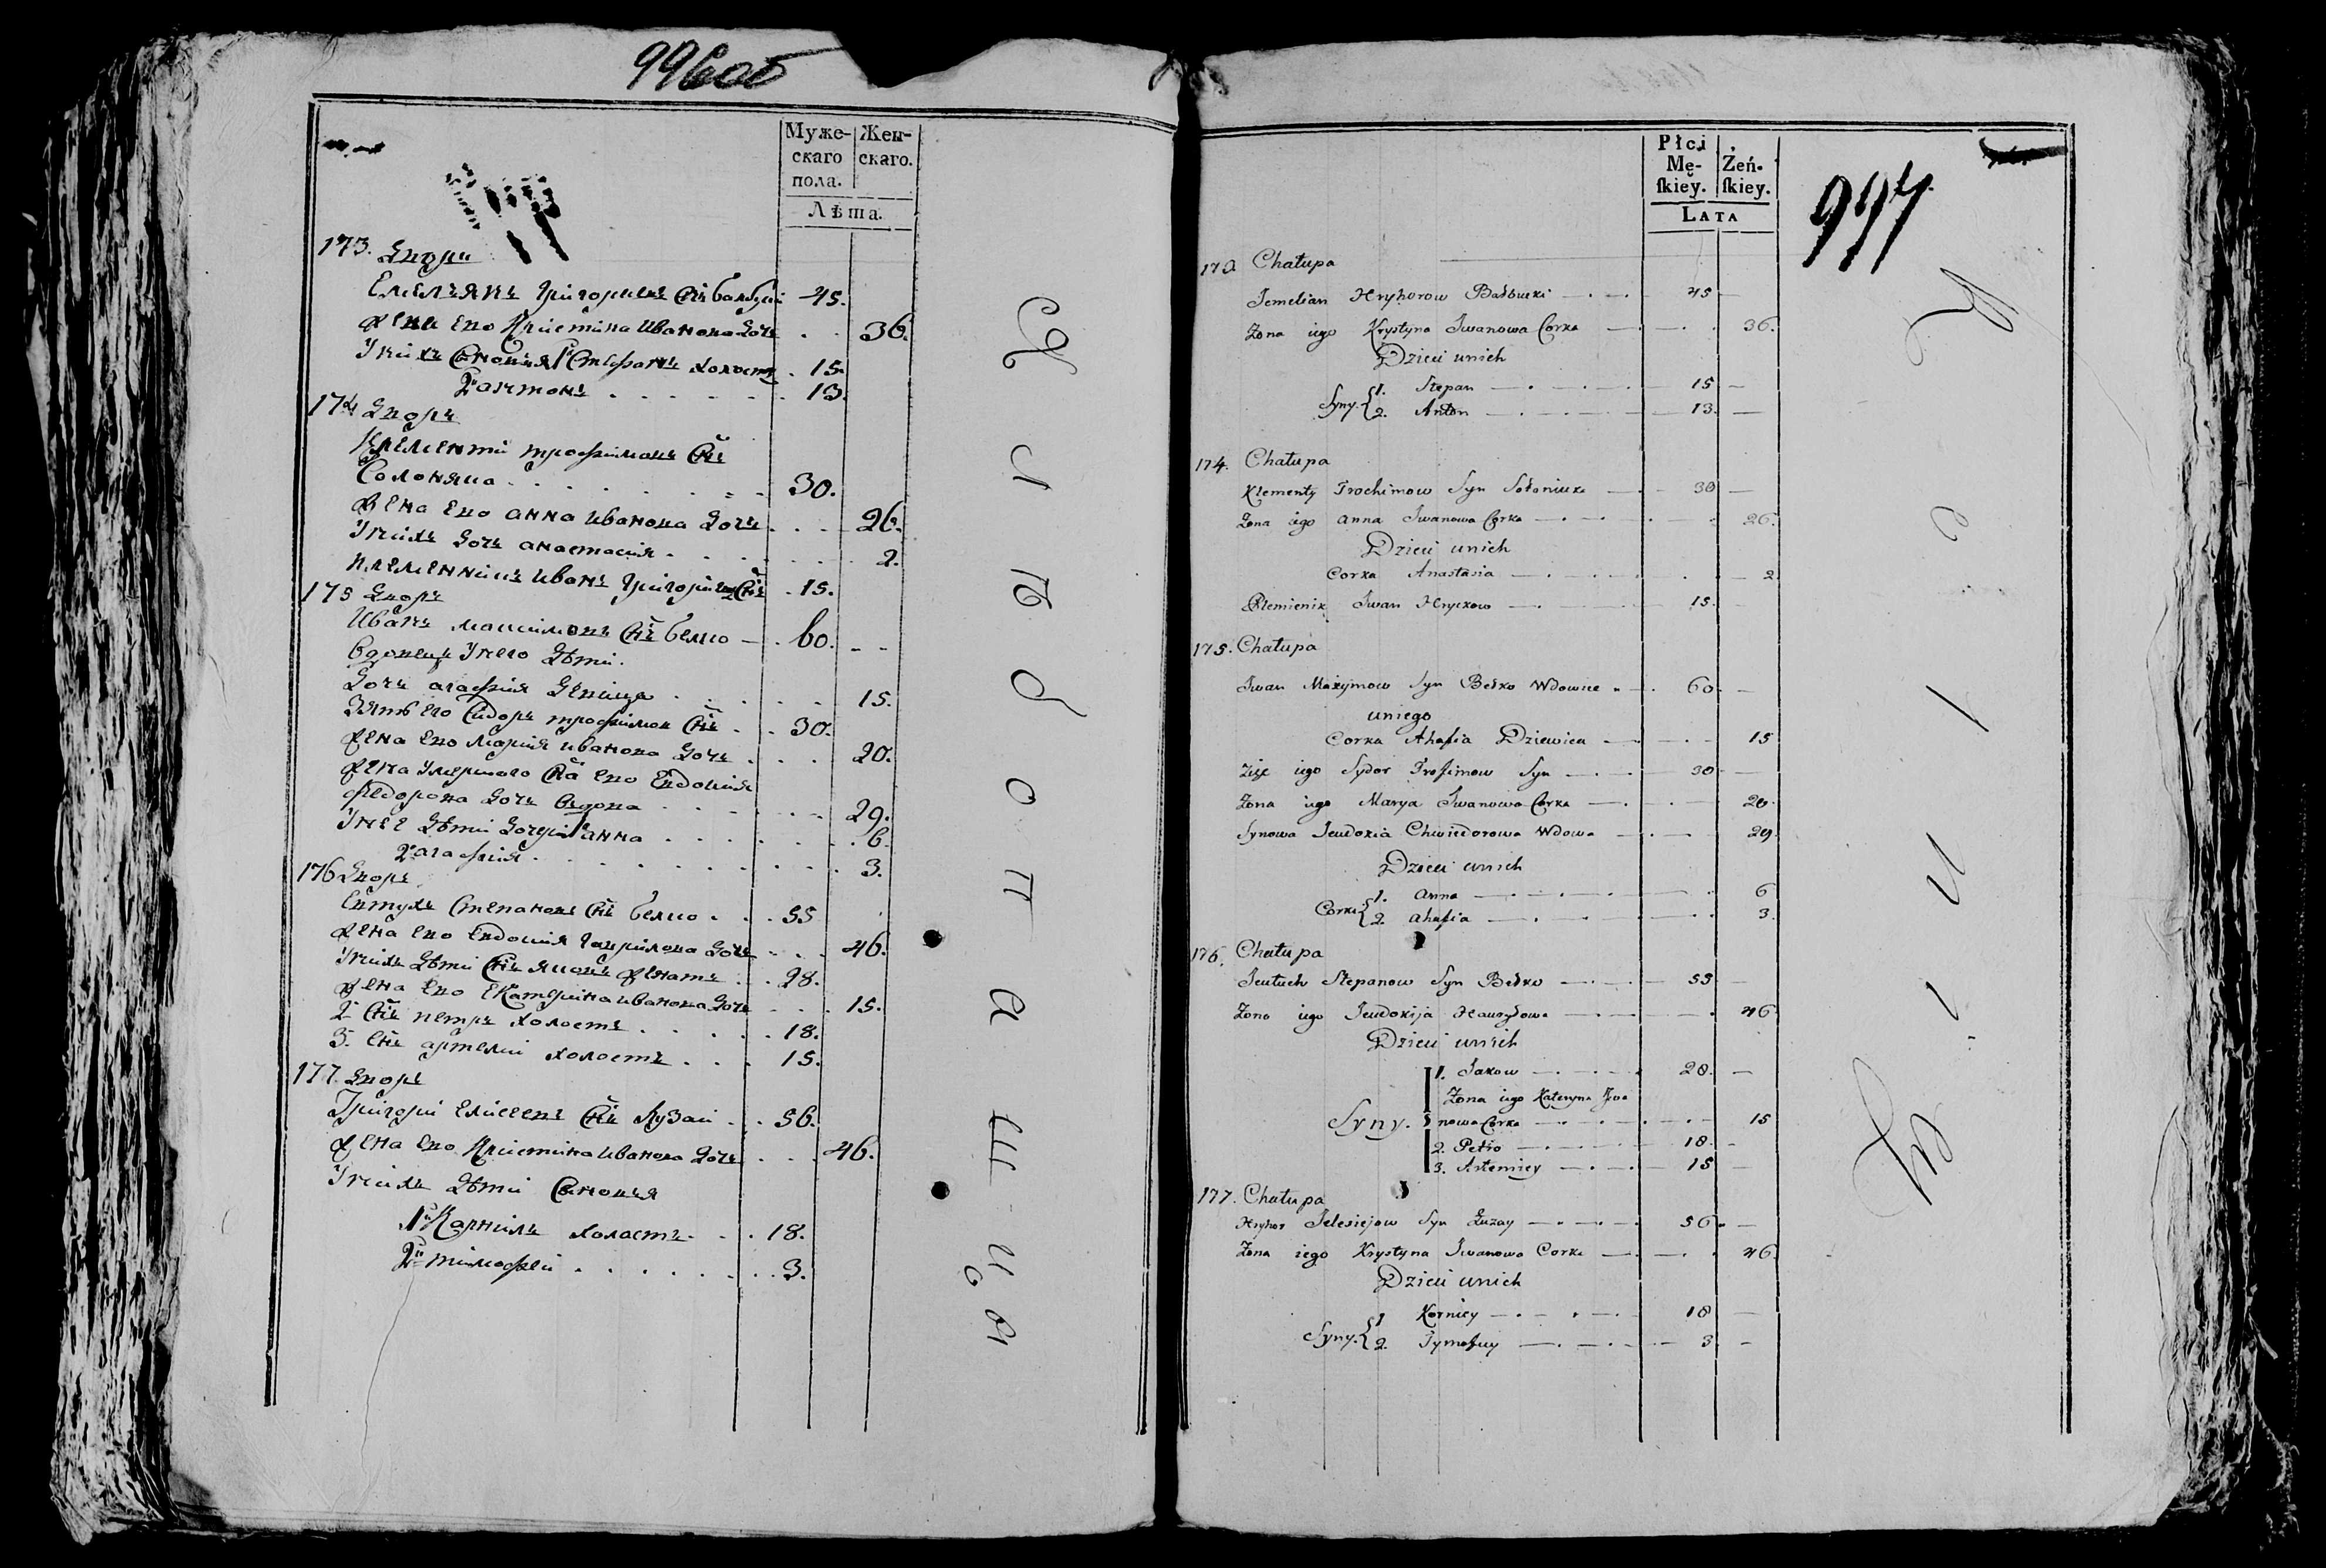 996об
Муже- Жен-
скаго скаго.
пола.
Лѣта.
173. Дворъ
Емельянъ Григорьевъ Сн҃ъ 45.
жена Ево Кристина Иванова Дочь 36.
У нихъ Сыновья 1 Стефанъ холостъ 15.
2 антонъ 13.
174 Дворъ
Клементи трофимовъ Сн҃ъ
Солоняка 30.
жена Ево анна Иванова Дочь 26.
У нихъ Дочь анастасия 2.
племенникъ Иванъ Григорьевъ Сн҃ъ 15.
175 Дворъ
Иванъ Максимовъ Сн҃ъ белко 60.
вдовецъ У него Дѣти
Дочь агафия Девица 15.
Зять его Сидоръ трофимов Сн҃ъ 30.
жена Ево Мария Иванова Дочь 20.
жена Умершого Сн҃а Ево Евдокия
Федорова Дочь вдова 29.
У нее Дѣти Дочери 1 анна 6.
2 агафия 3.
176 Дворъ
Евтухъ Степановъ Сн҃ъ белко 55
жена Ево Евдокия Гаврилова Дочь 46.
У нихъ Дѣти Сн҃ъ Яковъ женатъ 28.
жена Ево Екатерина Иванова Дочь 15.
2 Сн҃ъ петръ холостъ 18.
3. Сн҃ъ артемий холостъ 15.
177 Дворъ
Григори Елисеевъ Сн҃ъ Лузай 56.
жена Ево Кристина Иванова Дочь 46.
У нихъ Дѣти Сыновья
1й Карнилъ холастъ 18.
2й тимофей 3.
Płci
Mę- Żeń-
skiey. skiey.
LATA
997
173 Chałupa
Jemelian Hryhorow Bałbucki 45
Zona iego Krystyna Jwanowa Corka 36.
Dzieci unich
Syny. 1. Stepan 15
2. Anton 13
174. Chałupa
Klementy Trochimow Syn Sołoniuka 30
Zona iego anna Jwanowa Corka 26.
Dzieci unich
Corka Anastasia 2
Plemienik Jwan Hryckow 15.
175. Chałupa
Jwan Maxymow Syn Bełko Wdowiec 60
uniego
Corka Ahafia Dziewica 15
Zięc iego Sydor Trofimow Syn 30
Zona iego Marya Jwanowa Corka 20.
Synowa Jeudokia Chwiedorowa Wdowa 29
Dzieci unich
Corki 1. Anna 6
2. Ahafia 3.
176. Chałupa
Jeutuch Stepanow Syn Bełko 55
Zona iego Jeudokija Hauryłowa 46
Dzieci unich
1. Jakow 28.
Zona iego Kateryna Jwa
Syny. nowa Corka 15
2. Petro 18.
3. Artemiey 15
177. Chałupa
Hryhor Jelesiejow Syn Łuzay 56
Zona iego Krystyna Jwanowa Corka 46
Dzieci unich
Syny. 1 Korniey 18
2. Tymofiey 3